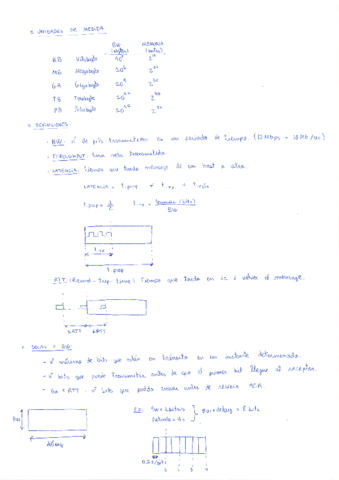 UNIDADES DE MEDIDA
BW MEMORIA
KB Kilobyte 10³ 2¹⁰
MB Megabyte 10⁶ 2²⁰
GB Gigabyte 10⁹ 2³⁰
TB Terabyte 10¹² 2⁴⁰
PB
DEFINICIONES
- BW: nº de bits transmitidos en un periodo de tiempo
- THROUGHPUT: tasa neta transmitida
- LATENCIA: tiempo que tarda mensaje de un host a otro.
LATENCIA = t prop + t tx + t
t prop = t tx =
BW
t tx
t prop
RTT: (Round-Trip-Time) Tiempo que tarda en ir y volver el mensaje.
RTT RTT
DELAY × BW
- nº máximo de bits que están en tránsito en un instante determinado.
- nº bits que puede transmitir antes de que el primer bit llegue al receptor.
- BW × RTT = nº bits que puedo enviar antes de recibir ACK
BW
delay
EX: BW = 2 bits/s
BW × delay = 8 bits